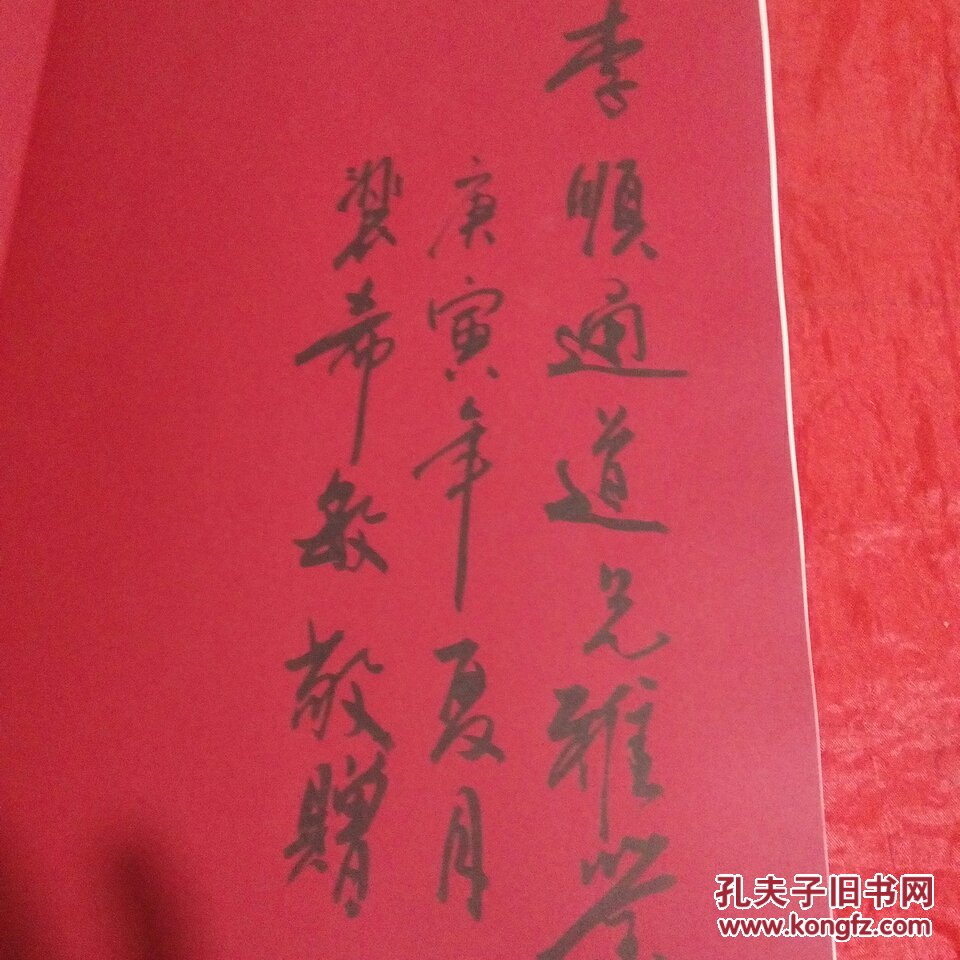 李顺通道兄雅鉴
庚寅年夏月
裴希敏敬赠
孔夫子旧书网
www.kongfz.com